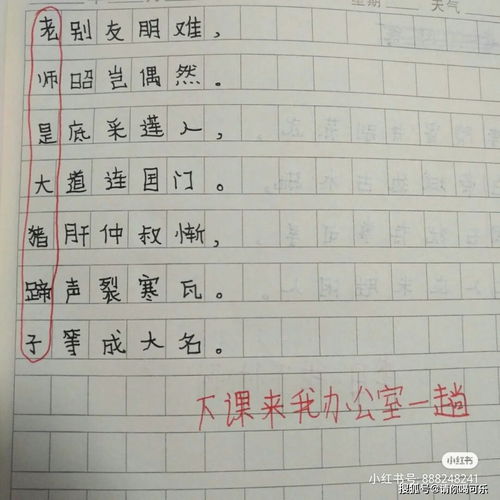 星期 天气
老别友朋难，
师昭岂偶然。
是底采莲人，
大道连国门。
猪肝仲叔惭，
蹄声裂寒瓦。
子等成大名。
下课来我办公室一趟
小红书
小红书号：888248241
搜狐号@请你喝可乐